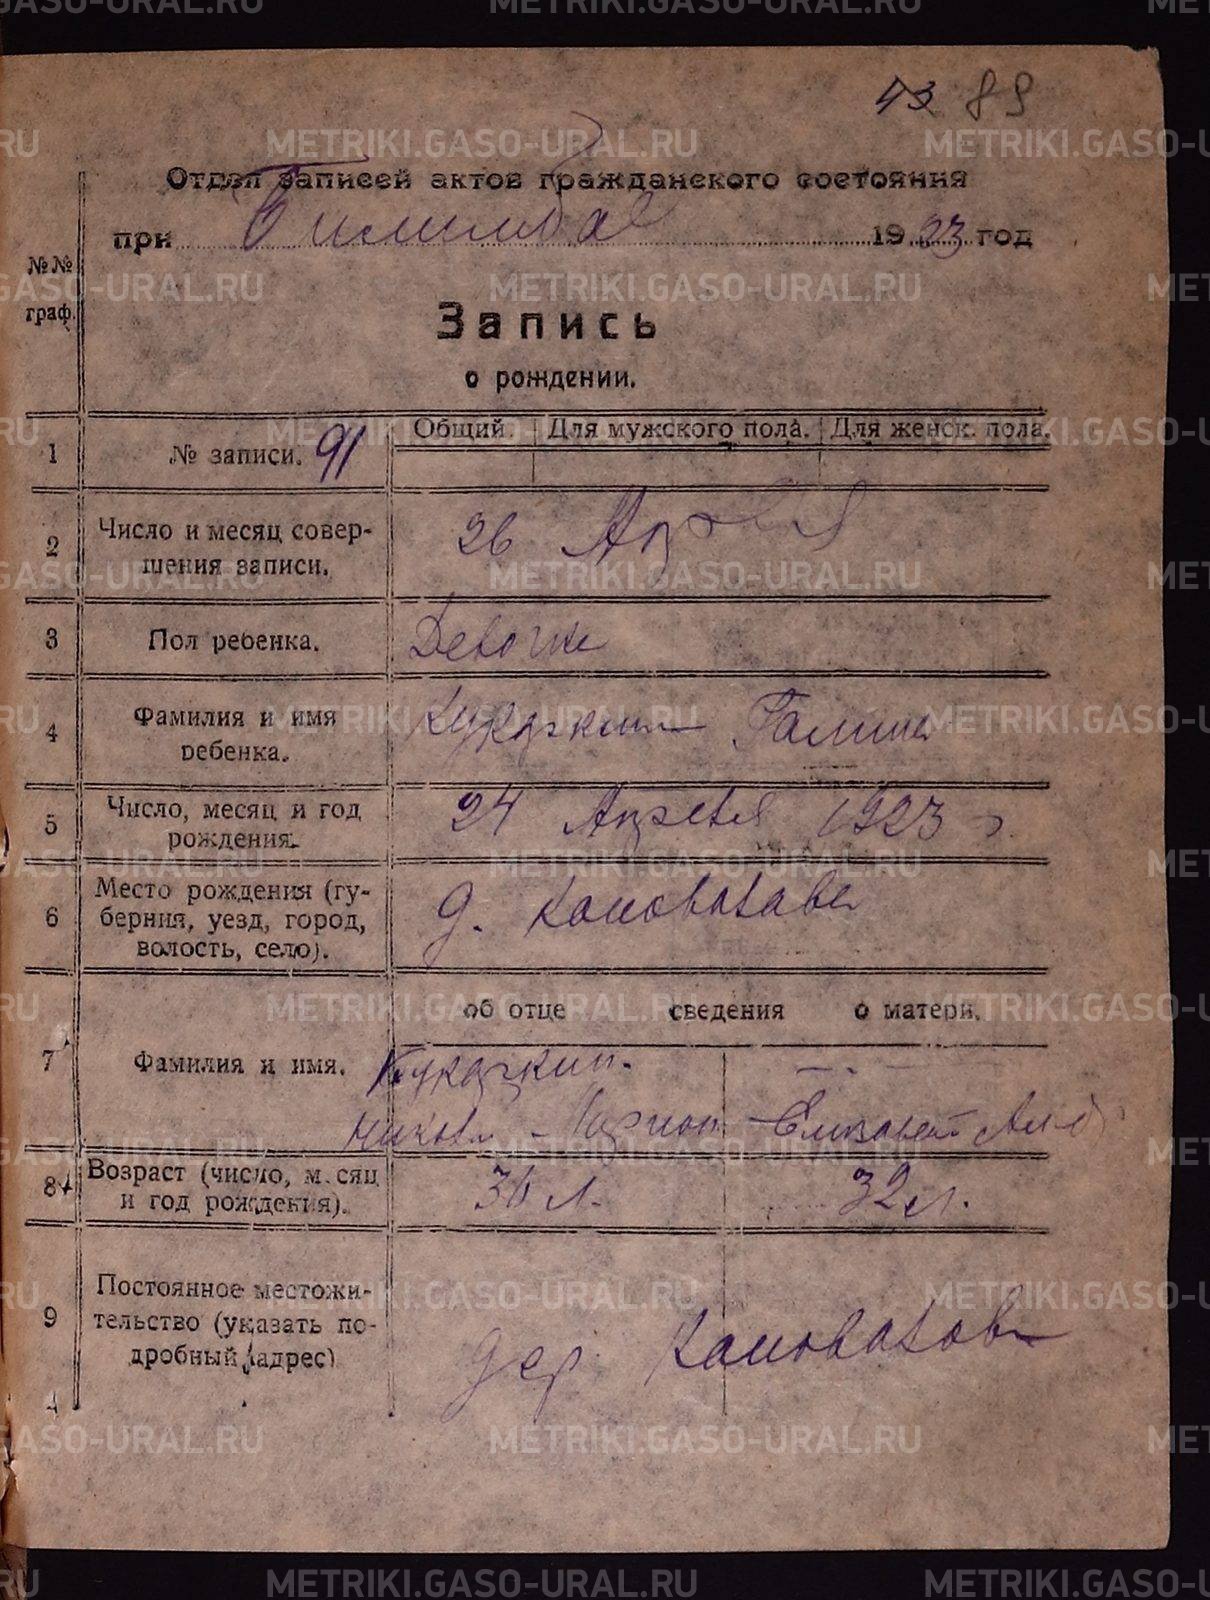 METRIKI.GASO-URAL.RU
43 89
Отдел записей актов гражданского состояния
при Билимбае 1923 год
№№ граф.
Запись
о рождении.
Общий. Для мужского пола. Для женск. пола.
1 № записи. 91
2 Число и месяц совер-
шения записи. 26 Апреля
3 Пол ребенка. Девочка
4 Фамилия и имя
ребенка. Галина
5 Число, месяц и год
рождения. 24 Апреля 1923 г.
6 Место рождения (гу-
берния, уезд, город,
волость, село). д. Коновалова
об отце сведения о матери.
7 Фамилия и имя.
Елизавет
8 Возраст (число, м.сяц
и год рождения). 32 л.
9 Постоянное местожи-
тельство (указать по-
дробный адрес) дер. Коновалов